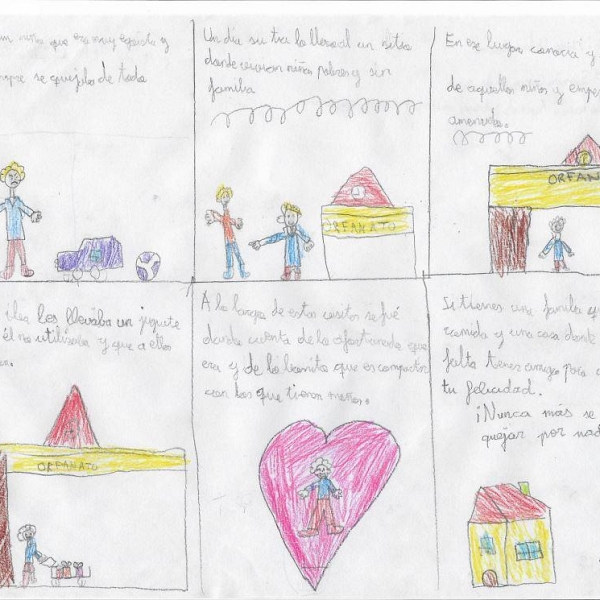 niño que era muy egoista y
se quejaba de todo
Un día su tia lo llevo al un sitio
donde vivian niños pobres y sin
familia
ORFANATO
En ese lugar conocia y
de aquellos niños y empe
amenudo.
ORFAN
les llevaba un juguete
él no utilizaba y que a ellos
ORFANATO
A lo largo de estas visitas se fué
dando cuenta de lo afortunado que
era y de lo bonito que es compartir
con los que tienen menos.
Si tienes una familia qu
comida y una casa donde
falta tener amigos para c
tu felicidad.
¡Nunca más se
quejar por nad